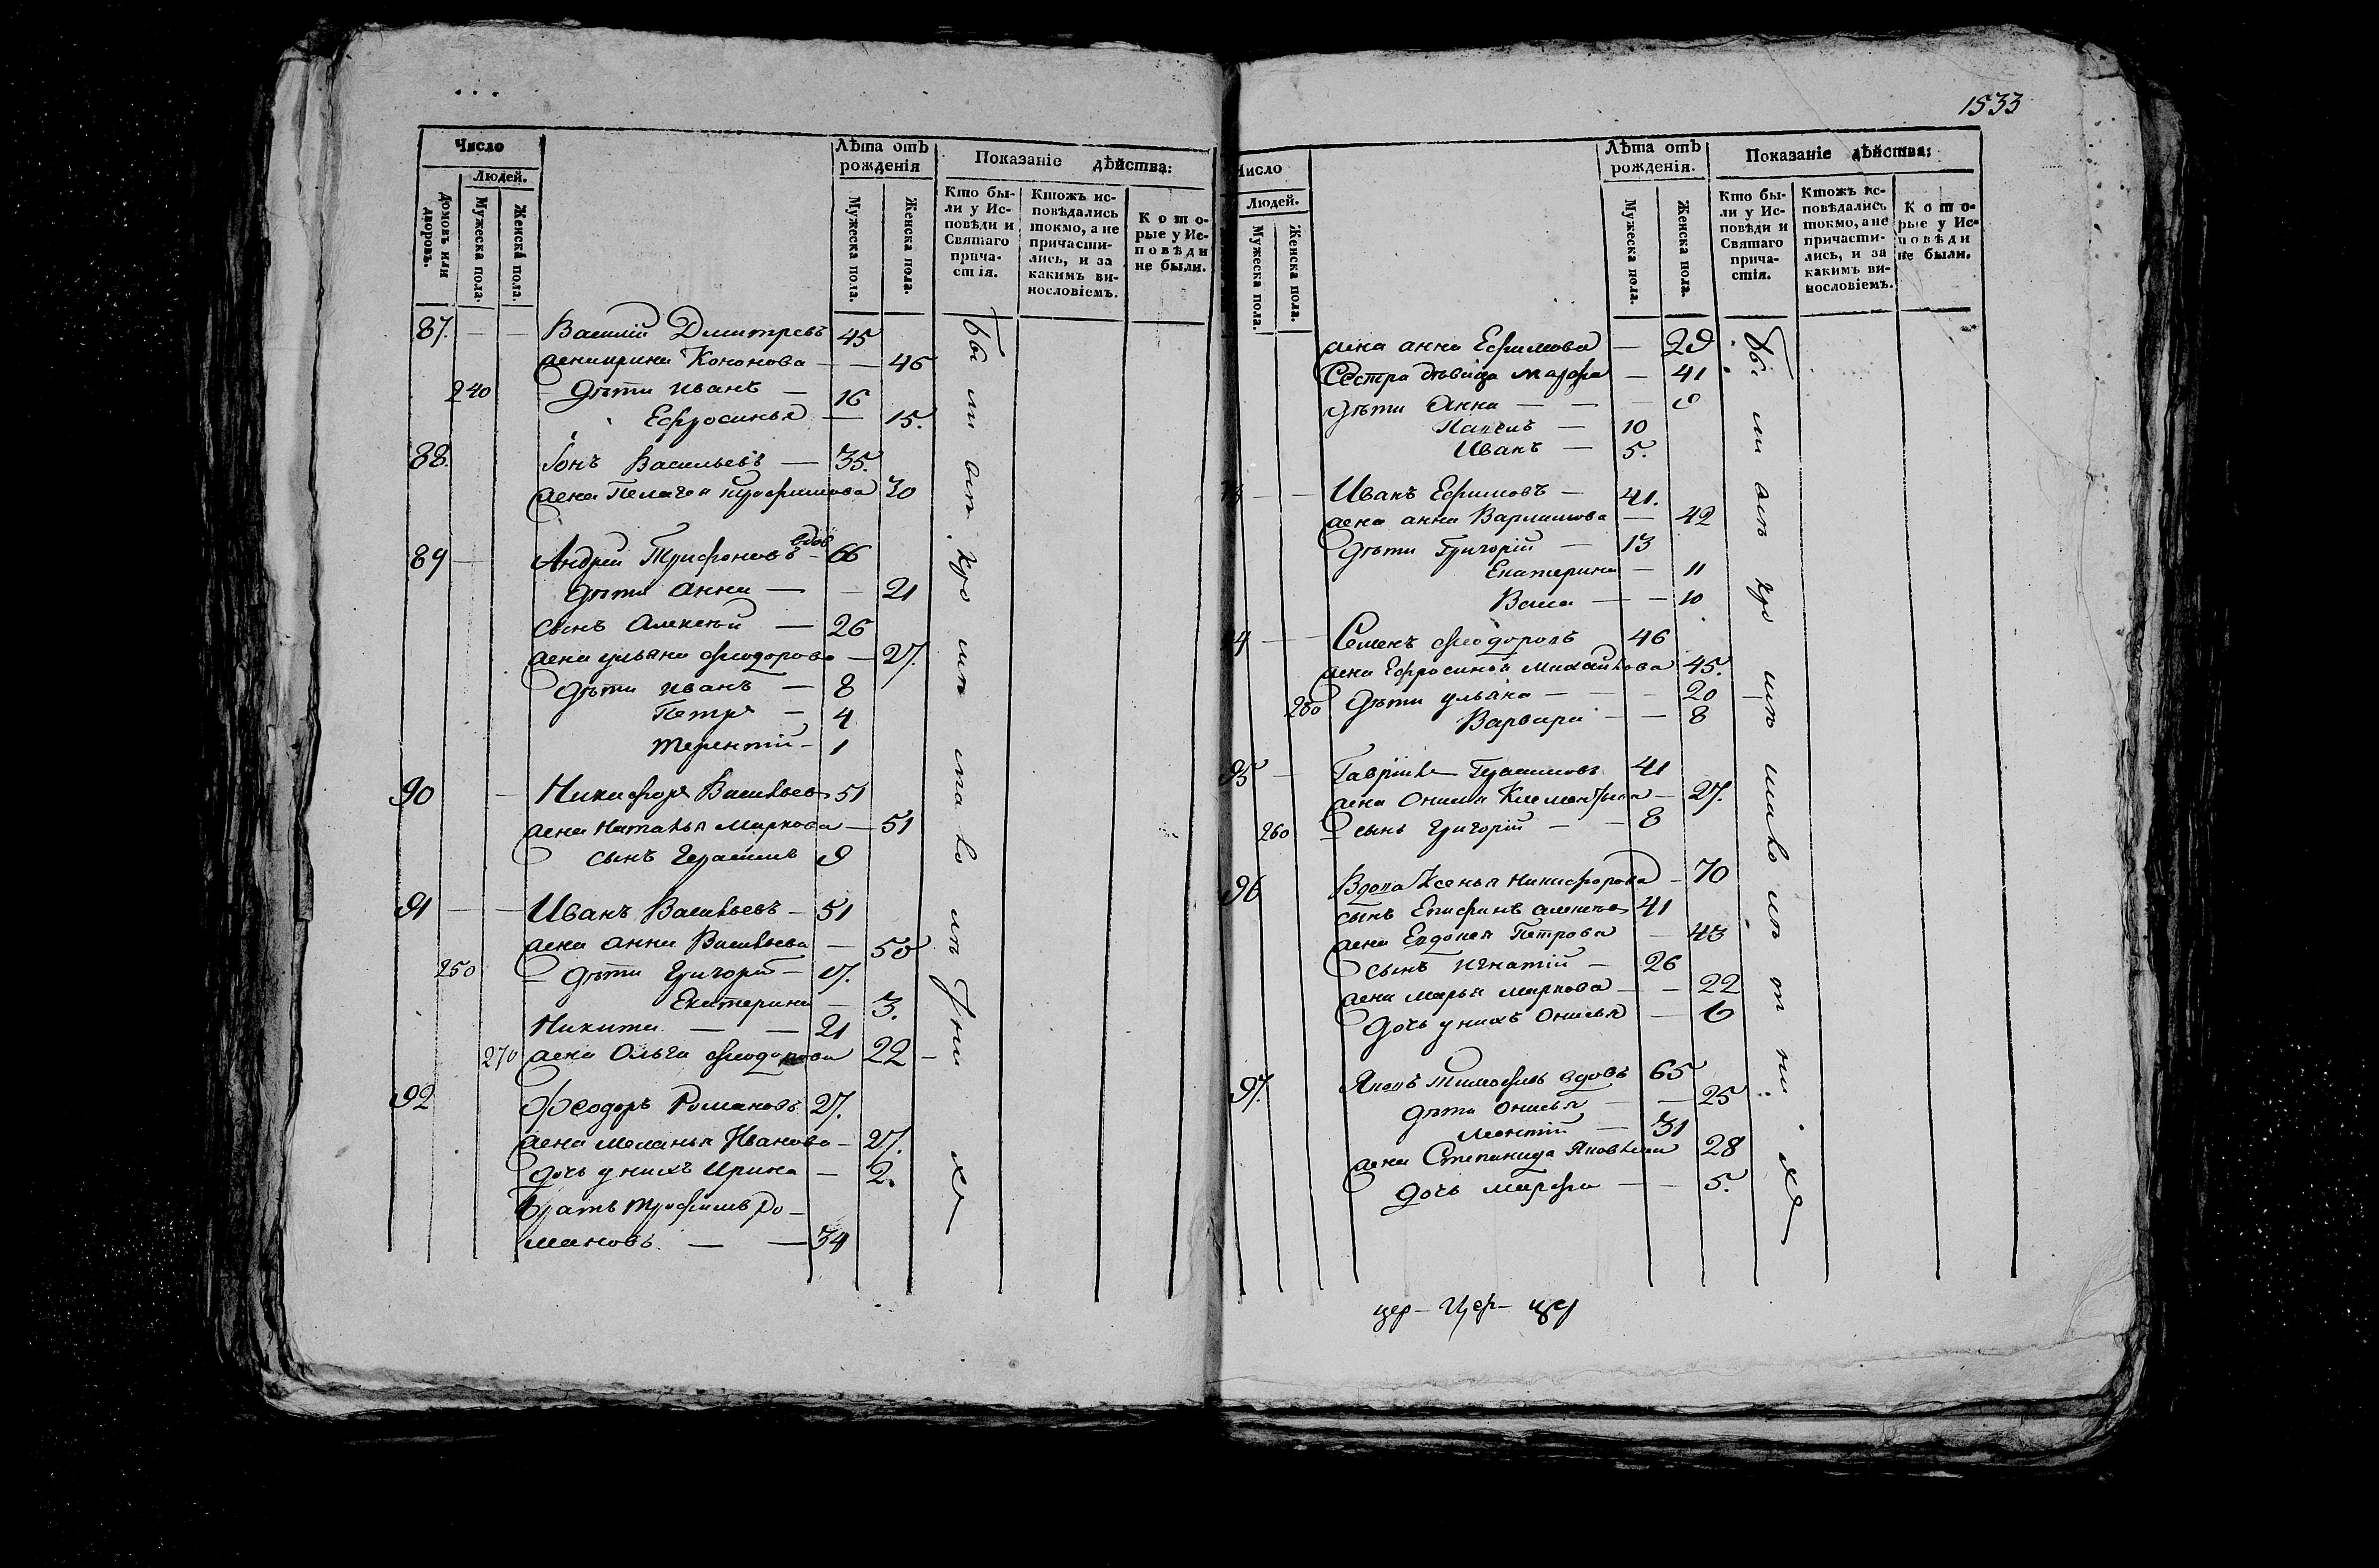 Число
Людей.
Домовъ или дворовъ.
Мужеска пола.
Женска пола.
Лѣта отъ рожденія
Мужеска пола.
Женска пола.
Показаніе дѣйства:
Кто бы-
ли у Ис-
повѣди и
Святаго
прича-
стія.
Ктожъ ис-
повѣдались
токмо, а не
причасти-
лись, и за
какимъ ви-
нословіемъ.
Кото-
рые у Ис-
повѣди
не были.
87. — — Василій Дмитревъ 45
жена ирина Кононова — — 46
240 дѣти иванъ — 16
Ефросинья — 15.
88. Іонъ Васильевъ — 35.
жена Пелагея трофимова 30
89 — Андрей Трифоновъ вдов — 66
дѣти анна — — 21
сынъ Алексѣй — 26
жена ульяна феодорова — 27.
дѣти иванъ — 8
Петръ — 4
терентій — 1
90 — Никифоръ Васильев 51
жена Наталья Маркова — 51
сынъ Герасимъ 9
91 — — Иванъ Васильевъ — 51
жена анна Васильева — 50
250 дѣти Григорій — 17.
Екатерина — 3.
Никита — — 21
270 жена Ольга феодорова 22 —
92 Феодоръ Романовъ 27.
жена меланья Иванова — 27.
дочь у нихъ Ирина — 2.
братъ трофимъ Ро-
мановъ. — — 34
1533
Число
Людей.
Мужеска пола.
Женска пола.
Лѣта отъ рожденія.
Мужеска пола.
Женска пола.
Показаніе дѣйства:
Кто бы-
ли у Ис-
повѣди и
Святаго
прича-
стія.
Ктожъ ис-
повѣдались
токмо, а не
причасти-
лись, и за
какимъ ви-
нословіемъ.
Кото-
рые у Ис-
повѣди
не были.
жена анна Ефимова — 29
Сестра дѣвица марфа — 41
дѣти Анна — — — 9
10
Иванъ — 5.
— — Иванъ Ефимовъ — 41.
жена анна Варламова — 42
дѣти Григорій — 13
Екатерина — 11
— — 10
4 — — Семенъ феодоровъ 46
жена Ефросинья Михайлова 45.
280 дѣти ульяна — — — 20
Варвара — — 8
95 — Гаврила Герасимовъ 41
жена Онисья Клементьева — 27.
260 сынъ Григорій — — 8
96 Вдова Ксенья Никифорова — 70
сынъ Епифанъ алексѣев 41
жена Евдокея Петрова — 43
сынъ игнатій — 26
жена марья маркова — — 22
дочь у нихъ Онисья — 6
97. Яковъ тимофеев вдовъ 65
дѣти онисья — — 25
леонтій — 31
жена Степанида Яковлева 28
дочь марфа — — 5.
цер— Цер— цер